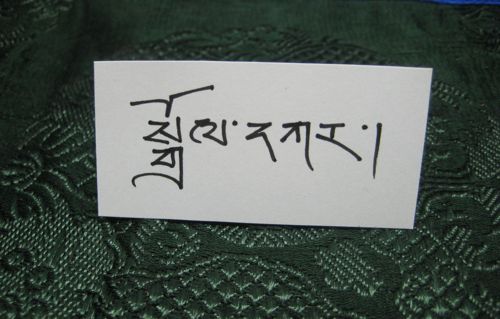 སྒྲོལ་དཀར་།